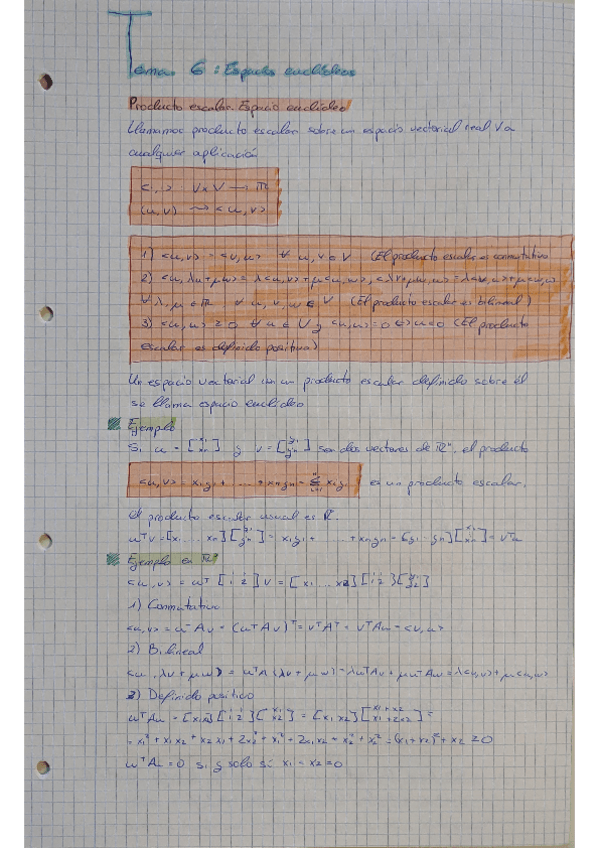 Tema 6: Espacios euclídeos
Producto escalar. Espacio euclídeo
Llamamos producto escalar sobre un espacio vectorial real V a
cualquier aplicación
<,> V×V → ℝ
(u,v) ⇝ <u,v>
1) <u,v> = <v,u> ∀ u,v ∈ V (El producto escalar es conmutativo
2) <u, λv+μw> = λ<u,v>+μ<u,w>, <λv+μw,u> = λ<v,u>+μ<w,u>
∀ λ,μ ∈ ℝ ∀ u,v,w ∈ V (El producto escalar es bilineal)
3) <u,u> ≥ 0 ∀ u ∈ V y <u,u> = 0 ⇔ u=0 (El producto
escalar es definido positivo)
Un espacio vectorial con un producto escalar definido sobre él
se llama espacio euclídeo
Ejemplo
Si u = [x₁ xₙ] y v = [y₁ yₙ] son dos vectores de ℝⁿ, el producto
<u,v> = x₁y₁ + ... + xₙyₙ = Σ xᵢyᵢ es un producto escalar.
El producto escalar usual es ℝ.
uᵀv = [x₁ ... xₙ][y₁ yₙ] = x₁y₁ + ... + xₙyₙ = [y₁ ... yₙ][x₁ xₙ] = vᵀu
Ejemplo en ℝ²
<u,v> = uᵀ [1 1 1 2] v = [x₁ ... x₂][1 1 1 2][y₁ y₂]
1) Conmutativo
<u,v> = uᵀAv = (uᵀAv)ᵀ = vᵀAᵀ = vᵀAu = <v,u>
2) Bilineal
<u, λv + μw> = uᵀA(λv + μw) = λuᵀAv + μuᵀAw = λ<u,v> + μ<u,w>
3) Definido positivo
uᵀAu = [x₁ x₂][1 1 1 2][x₁ x₂] = [x₁ x₂][x₁+x₂ x₁+2x₂] =
= x₁² + x₁x₂ + x₂x₁ + 2x₂² = x₁² + 2x₁x₂ + x₂² + x₂² = (x₁+x₂)² + x₂ ≥ 0
uᵀAu = 0 si y solo si x₁ = x₂ = 0